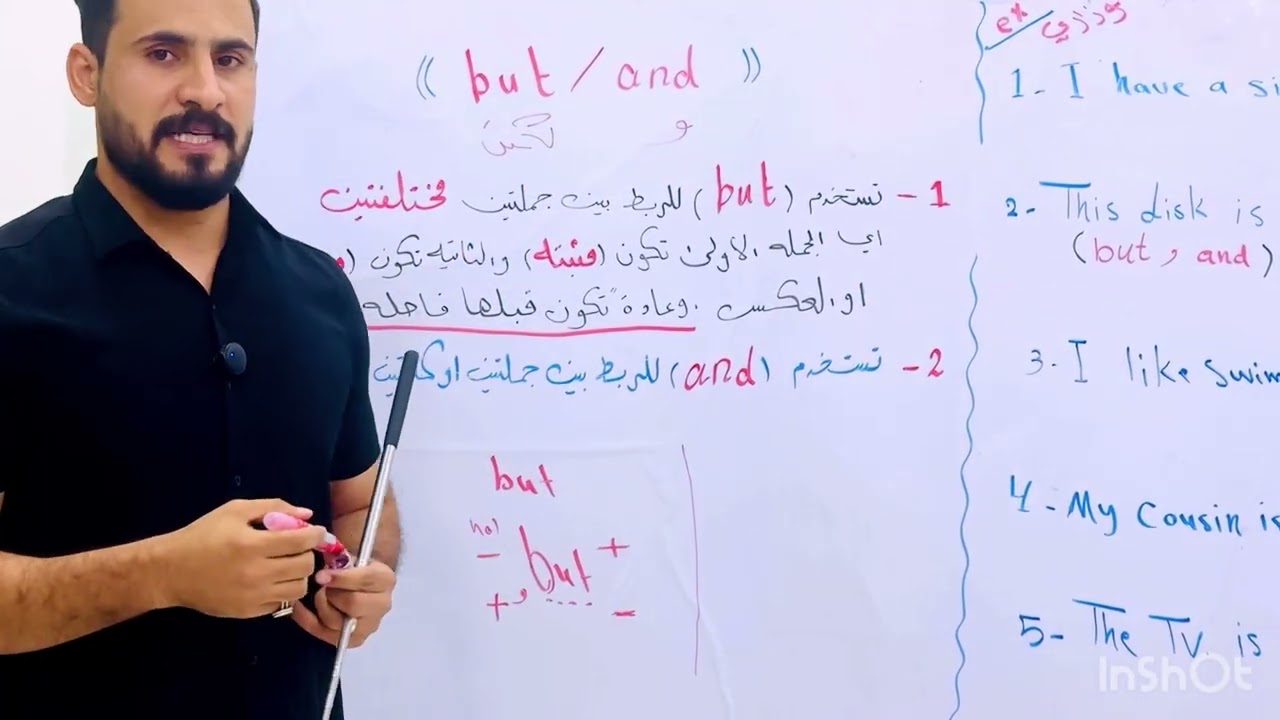 (( but / and ))
لكن و
1 - تستخدم (but) للربط بين جملتين مختلفتين
اي الجمله الاولى تكون (مثبته) والثانيه تكون (م
او العكس . وعادة ً تكون قبلها فاصله
2 - تستخدم (and) للربط بين جملتين او كلمتين
but
not
- but +
+ , .... -
ex وزاري
1- I have a si
2- This disk is
(but , and)
3- I like swim
4- My cousin is
5- The TV. is
InShOt